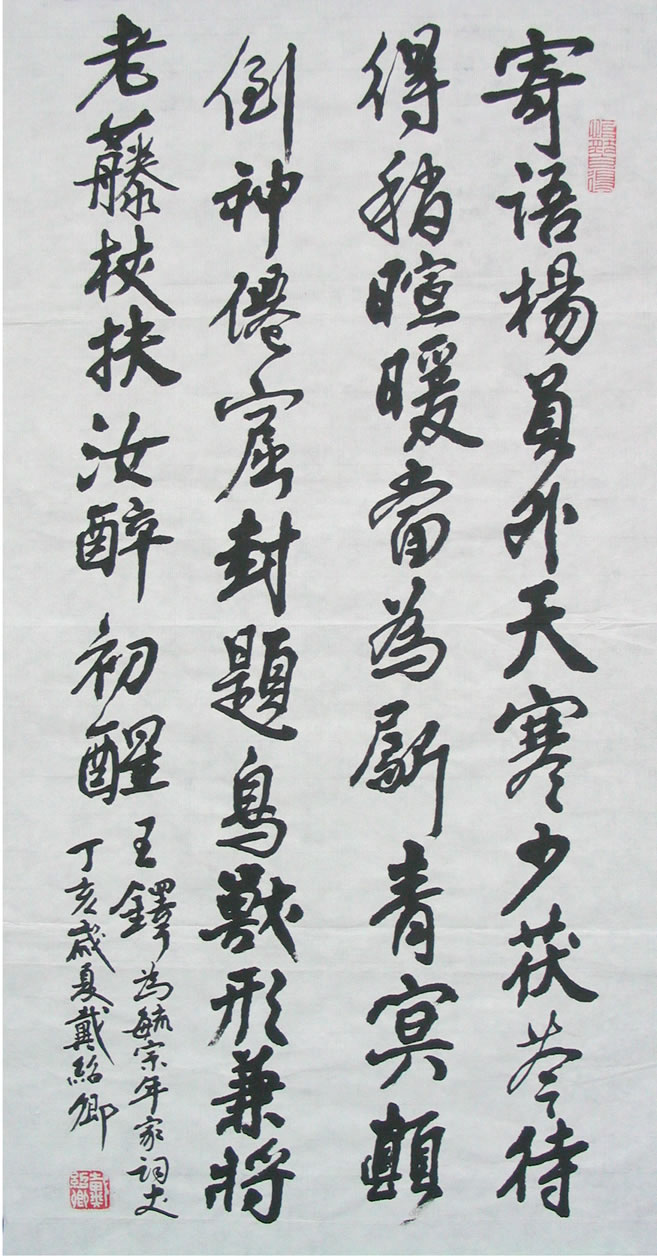 寄语楊員外天寒少茯苓待
得稍暄暖當為劚青冥顛
倒神僊窟封題鳥獸形兼將
老藤杖扶汝醉初醒
王鐸為毓宗年家詞丈
丁亥歲夏戴紹卿
戴紹卿